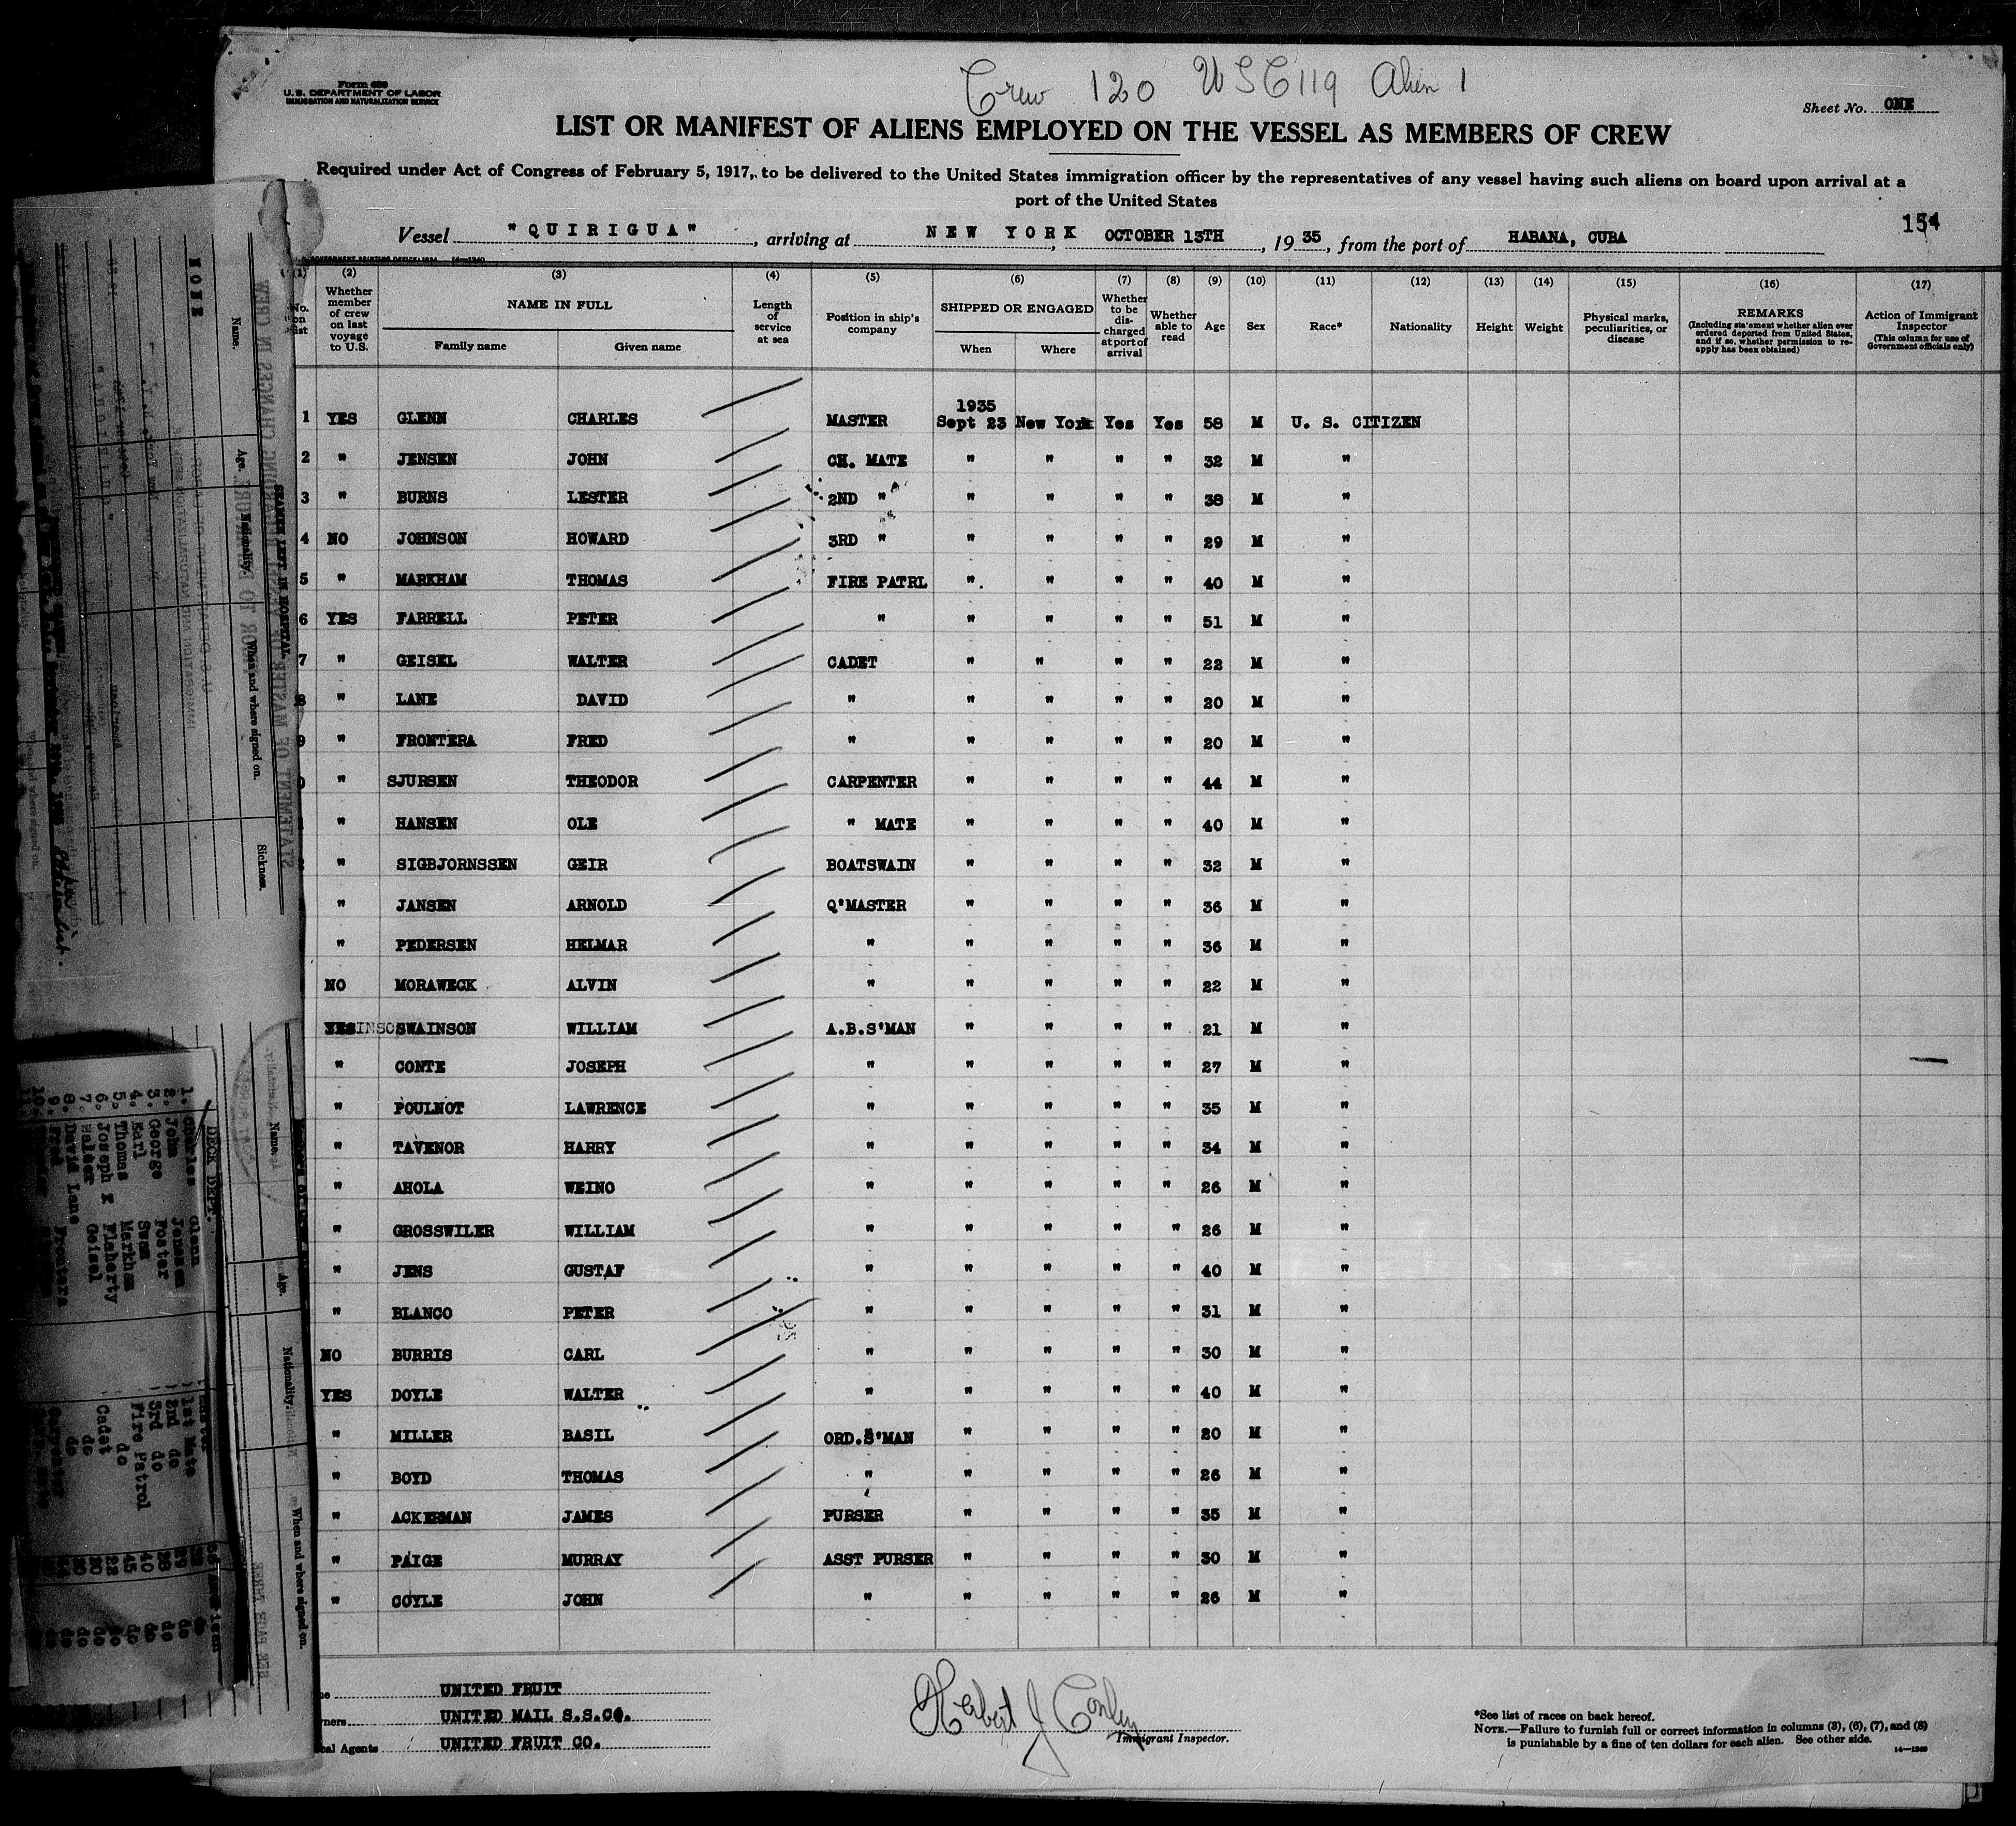 Crew 120 USC 119 Alien 1
Form 680
U. S. DEPARTMENT OF LABOR
IMMIGRATION AND NATURALIZATION SERVICE
Sheet No. ONE
LIST OR MANIFEST OF ALIENS EMPLOYED ON THE VESSEL AS MEMBERS OF CREW
Required under Act of Congress of February 5, 1917, to be delivered to the United States immigration officer by the representatives of any vessel having such aliens on board upon arrival at a
port of the United States
154
Vessel "QUIRIGUA", arriving at NEW YORK, OCTOBER 13TH, 1935, from the port of HABANA, CUBA
(1) (2) (3) (4) (5) (6) (7) (8) (9) (10) (11) (12) (13) (14) (15) (16) (17)
No. on list | Whether member of crew on last voyage to U.S. | NAME IN FULL Family name Given name | Length of service at sea | Position in ship's company | SHIPPED OR ENGAGED When Where | Whether to be discharged at port of arrival | Whether able to read | Age | Sex | Race* | Nationality | Height | Weight | Physical marks, peculiarities, or disease | REMARKS (Including statement whether alien ever ordered deported from United States, and if so, whether permission to reapply has been obtained) | Action of Immigrant Inspector (This column for use of Government officials only)
1 YES GLENN CHARLES MASTER 1935 Sept 23 New York Yes Yes 58 M U. S. CITIZEN
2 " JENSEN JOHN CH. MATE " " " " 32 M "
3 " BURNS LESTER 2ND " " " " " 38 M "
4 NO JOHNSON HOWARD 3RD " " " " " 29 M "
5 " MARKHAM THOMAS FIRE PATRL " " " " 40 M "
6 YES FARRELL PETER " " " " " 51 M "
7 " GEISEL WALTER CADET " " " " 22 M "
8 " LANE DAVID " " " " " 20 M "
9 " FRONTERA FRED " " " " " 20 M "
" SJURSEN THEODOR CARPENTER " " " " 44 M "
" HANSEN OLE " MATE " " " " 40 M "
" SIGBJORNSSEN GEIR BOATSWAIN " " " " 32 M "
" JANSEN ARNOLD Q'MASTER " " " " 36 M "
" PEDERSEN HELMAR " " " " " 36 M "
NO MORAWECK ALVIN " " " " " 22 M "
YES SWAINSON WILLIAM A.B.S'MAN " " " " 21 M "
" CONTE JOSEPH " " " " " 27 M "
" POULNOT LAWRENCE " " " " " 35 M "
" TAVENOR HARRY " " " " " 34 M "
" AHOLA WEINO " " " " " 26 M "
" GROSSWILER WILLIAM " " " " " 26 M "
" JENS GUSTAF " " " " " 40 M "
" BLANCO PETER " " " " " 31 M "
NO BURRIS CARL " " " " " 30 M "
YES DOYLE WALTER " " " " " 40 M "
" MILLER BASIL ORD.S'MAN " " " " 20 M "
" BOYD THOMAS " " " " " 26 M "
" ACKERMAN JAMES PURSER " " " " 35 M "
" PAIGE MURRAY ASST PURSER " " " " 30 M "
" COYLE JOHN " " " " " 26 M "
UNITED FRUIT
UNITED MAIL S.S.CO.
Agents UNITED FRUIT CO.
Herbert J Conley
Immigrant Inspector.
*See list of races on back hereof.
NOTE.—Failure to furnish full or correct information in columns (3), (6), (7), and (8)
is punishable by a fine of ten dollars for each alien. See other side.
NONE
Name. Age. Nationality. When and where signed on. Sickness.
SEAMEN LEFT IN HOSPITAL
DECK DEPT.
1. Charles Glenn
2. John Jensen
3. George Foster
4. Karl
5. Thomas Markham
6. Joseph Flaherty
7. Walter Geisel
8. David Lane
9. Fred Frontera
1st Mate
2nd do
3rd do
Fire Patrol
do
Cadet
do
do
Name. Age. Nationality. When and where signed on.